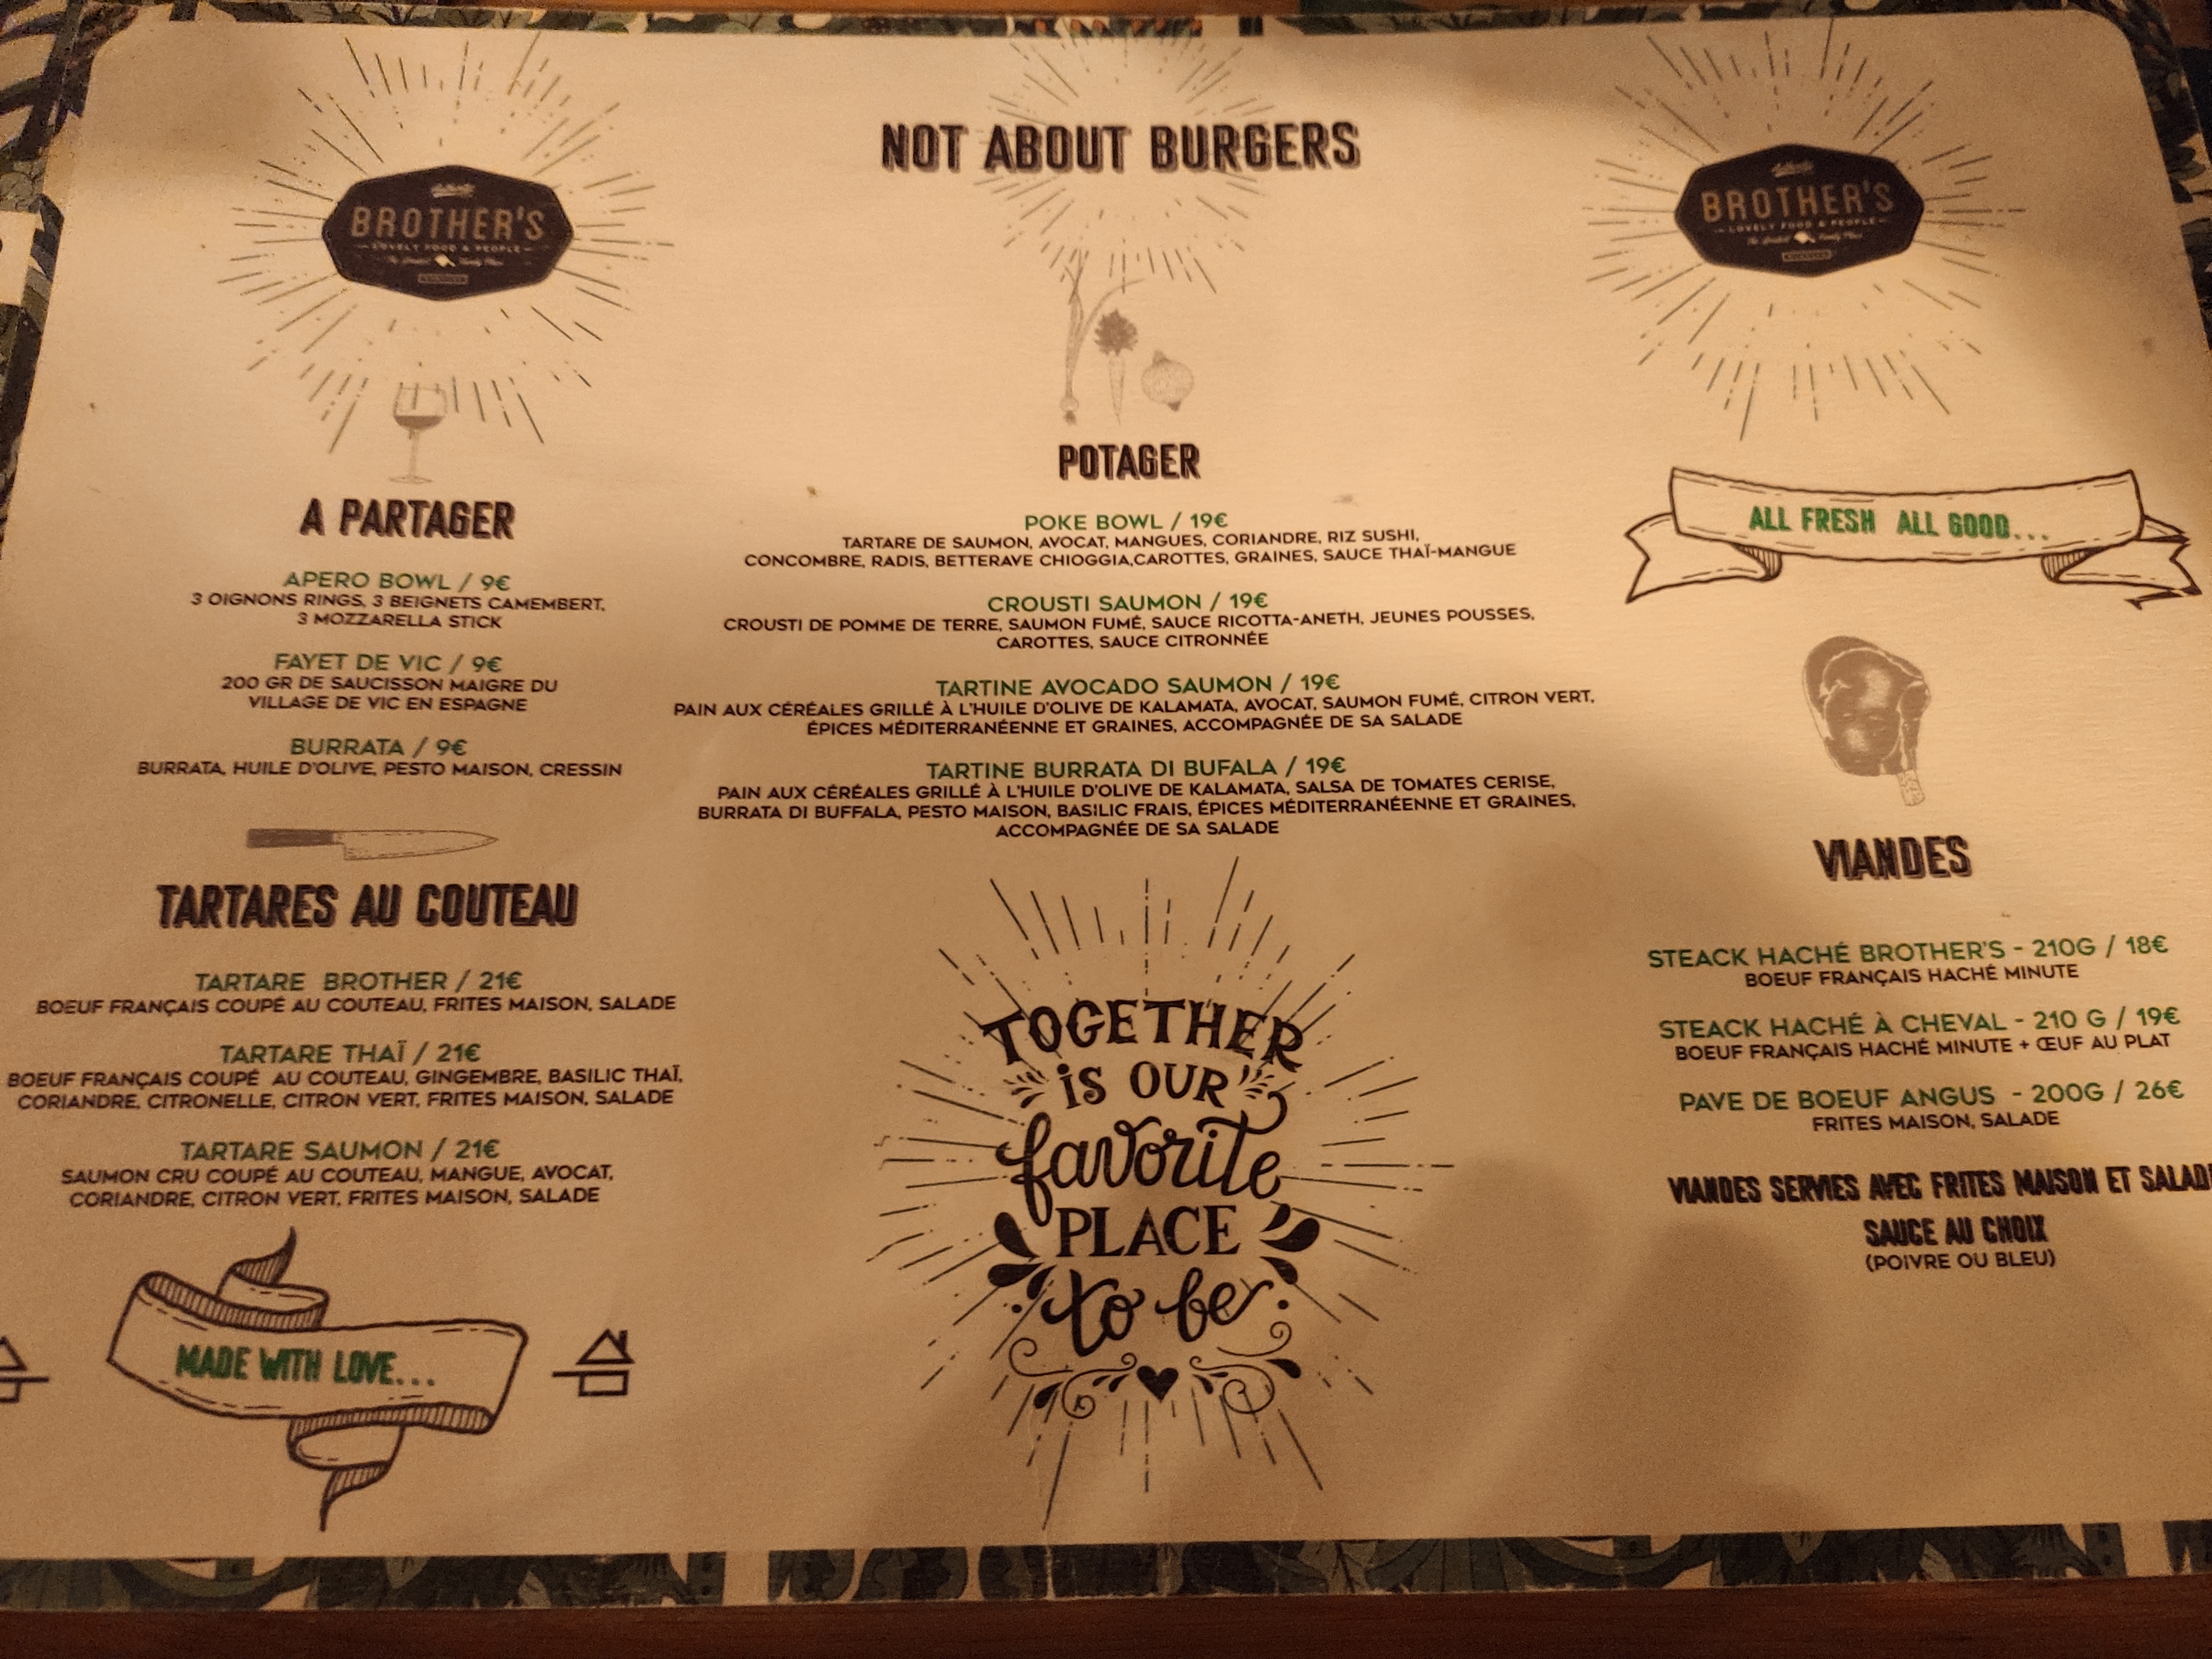 NOT ABOUT BURGERS
BROTHER'S
LOVELY FOOD & PEOPLE
BROTHER'S
LOVELY FOOD & PEOPLE
A PARTAGER
APERO BOWL / 9€
3 OIGNONS RINGS, 3 BEIGNETS CAMEMBERT,
3 MOZZARELLA STICK
FAYET DE VIC / 9€
200 GR DE SAUCISSON MAIGRE DU
VILLAGE DE VIC EN ESPAGNE
BURRATA / 9€
BURRATA, HUILE D'OLIVE, PESTO MAISON, CRESSIN
TARTARES AU COUTEAU
TARTARE BROTHER / 21€
BOEUF FRANÇAIS COUPÉ AU COUTEAU, FRITES MAISON, SALADE
TARTARE THAÏ / 21€
BOEUF FRANÇAIS COUPÉ AU COUTEAU, GINGEMBRE, BASILIC THAÏ,
CORIANDRE, CITRONELLE, CITRON VERT, FRITES MAISON, SALADE
TARTARE SAUMON / 21€
SAUMON CRU COUPÉ AU COUTEAU, MANGUE, AVOCAT,
CORIANDRE, CITRON VERT, FRITES MAISON, SALADE
MADE WITH LOVE...
POTAGER
POKE BOWL / 19€
TARTARE DE SAUMON, AVOCAT, MANGUES, CORIANDRE, RIZ SUSHI,
CONCOMBRE, RADIS, BETTERAVE CHIOGGIA,CAROTTES, GRAINES, SAUCE THAÏ-MANGUE
CROUSTI SAUMON / 19€
CROUSTI DE POMME DE TERRE, SAUMON FUMÉ, SAUCE RICOTTA-ANETH, JEUNES POUSSES,
CAROTTES, SAUCE CITRONNÉE
TARTINE AVOCADO SAUMON / 19€
PAIN AUX CÉRÉALES GRILLÉ À L'HUILE D'OLIVE DE KALAMATA, AVOCAT, SAUMON FUMÉ, CITRON VERT,
ÉPICES MÉDITERRANÉENNE ET GRAINES, ACCOMPAGNÉE DE SA SALADE
TARTINE BURRATA DI BUFALA / 19€
PAIN AUX CÉRÉALES GRILLÉ À L'HUILE D'OLIVE DE KALAMATA, SALSA DE TOMATES CERISE,
BURRATA DI BUFFALA, PESTO MAISON, BASILIC FRAIS, ÉPICES MÉDITERRANÉENNE ET GRAINES,
ACCOMPAGNÉE DE SA SALADE
TOGETHER
iS OUR
favorite
PLACE
to be
ALL FRESH ALL GOOD...
VIANDES
STEACK HACHÉ BROTHER'S - 210G / 18€
BOEUF FRANÇAIS HACHÉ MINUTE
STEACK HACHÉ À CHEVAL - 210 G / 19€
BOEUF FRANÇAIS HACHÉ MINUTE + ŒUF AU PLAT
PAVE DE BOEUF ANGUS - 200G / 26€
FRITES MAISON, SALADE
VIANDES SERVIES AVEC FRITES MAISON ET SALAD
SAUCE AU CHOIX
(POIVRE OU BLEU)